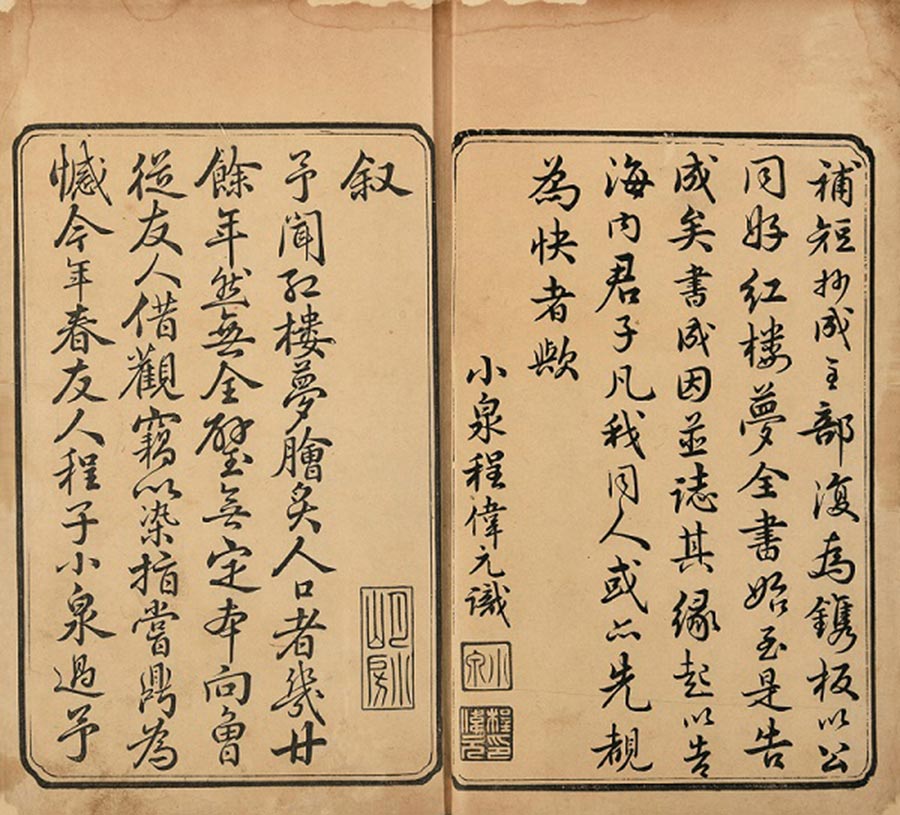 補短抄成全部復為鐫板以公
同好红楼夢全書始至是告
成矣書成因並誌其緣起以告
海内君子凡我同人或亦先覩
為快者歟
小泉程偉元識
小泉
叙
予聞红楼夢膾炙人口者幾廿
餘年然無全璧无定本向曽
從友人借觀竊以染指嘗鼎為
憾今年春友人程子小泉過予